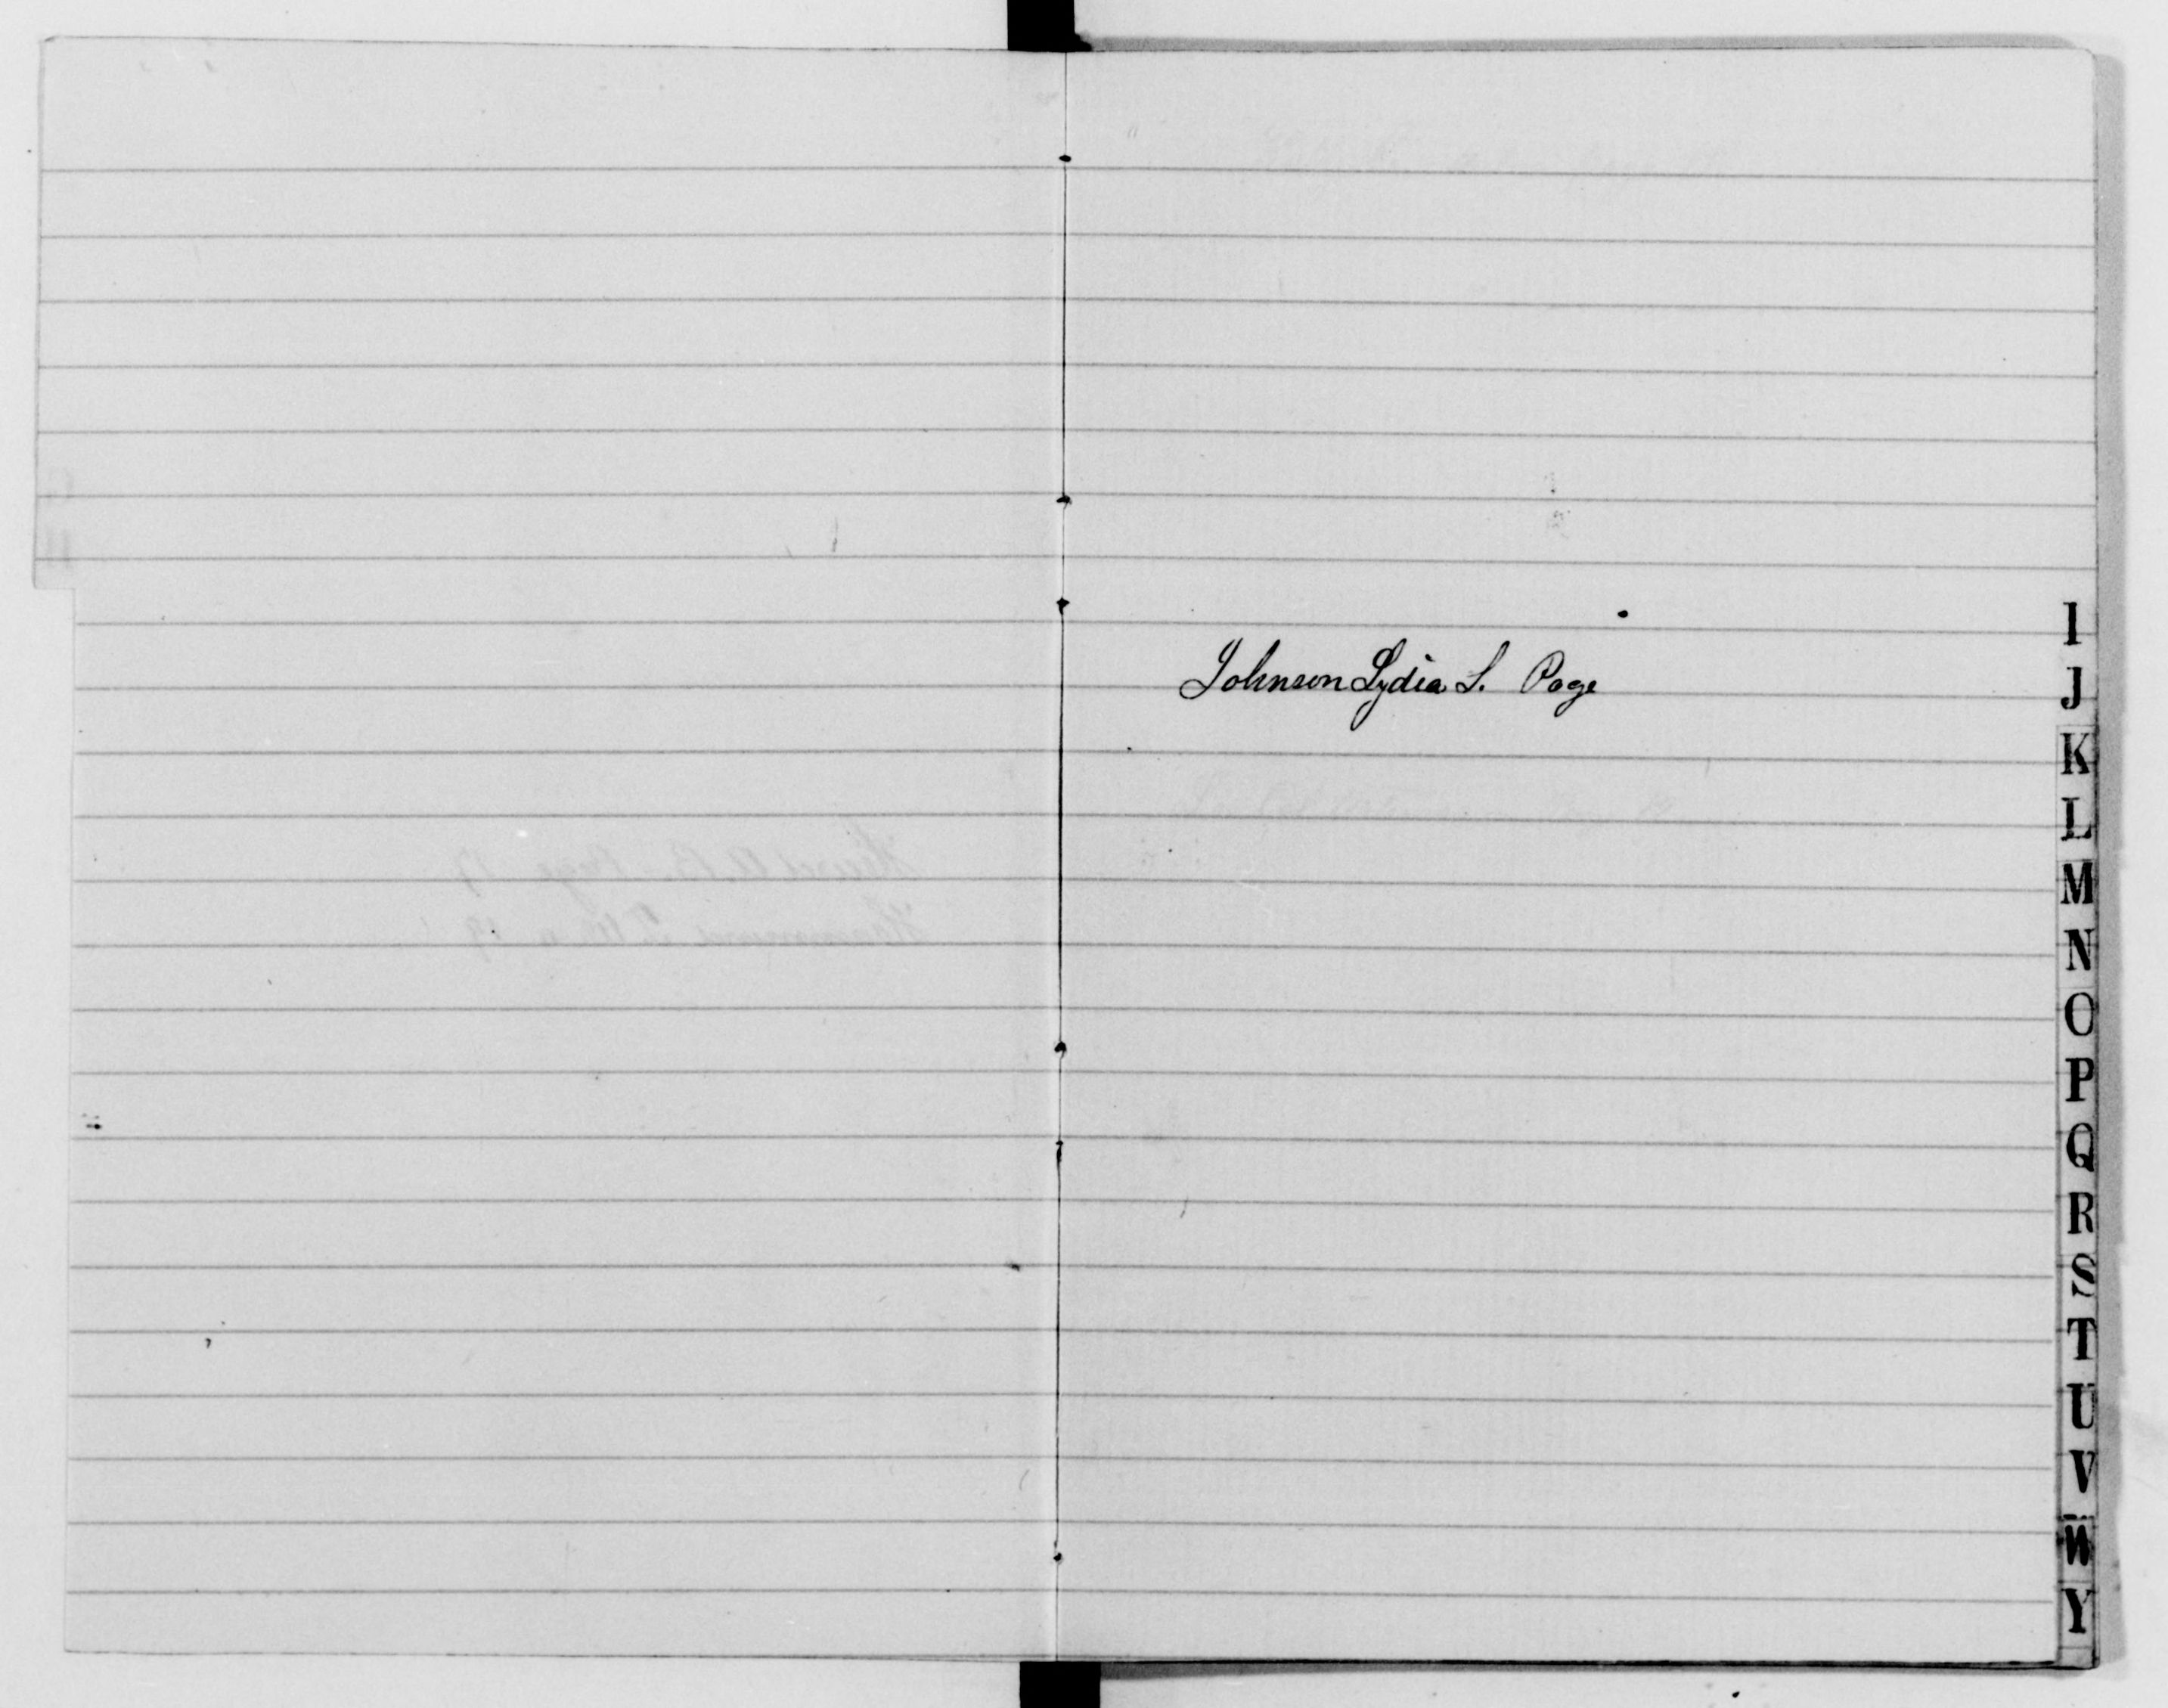 Johnson Lydia S. Page
I
J
K
L
M
N
O
P
Q
R
S
T
U
V
W
Y